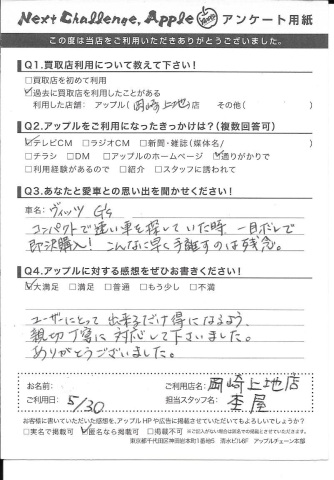 Next Challenge, Apple アンケート用紙
この度は当店をご利用いただきありがとうございました。
Q1.買取店利用について教えて下さい!
□買取店を初めて利用
☑過去に買取店を利用したことがある
利用した店舗: アップル(岡崎上地)店 その他( )
Q2.アップルをご利用になったきっかけは?(複数回答可)
☑テレビCM □ラジオCM □新聞・雑誌(媒体名/ )
□チラシ □DM □アップルのホームページ ☑通りがかりで
□利用経験があるので □紹介 □スタッフに誘われて
Q3.あなたと愛車との思い出を聞かせください!
車名: ヴィッツ G's
コンパクトで速い車を探していた時、一目ボレで
即決購入! こんなに早く手離すのは残念。
Q4.アップルに対する感想をぜひお書きください!
☑大満足 □満足 □普通 □もう少し □不満
ユーザーにとって出来るだけ得になるよう、
親切丁寧に対応して下さいました。
ありがとうございました。
お名前: ご利用店名: 岡崎上地店
ご利用日: 5/30 担当スタッフ名: 杢屋
お客様に書いていただいた感想を、アップルHPや広告に掲載させていただいてもよろしいでしょうか?
□実名で掲載可 ☑匿名なら掲載可 □掲載不可
東京都千代田区神田岩本町1番地5 清水ビル6F アップルチェーン本部